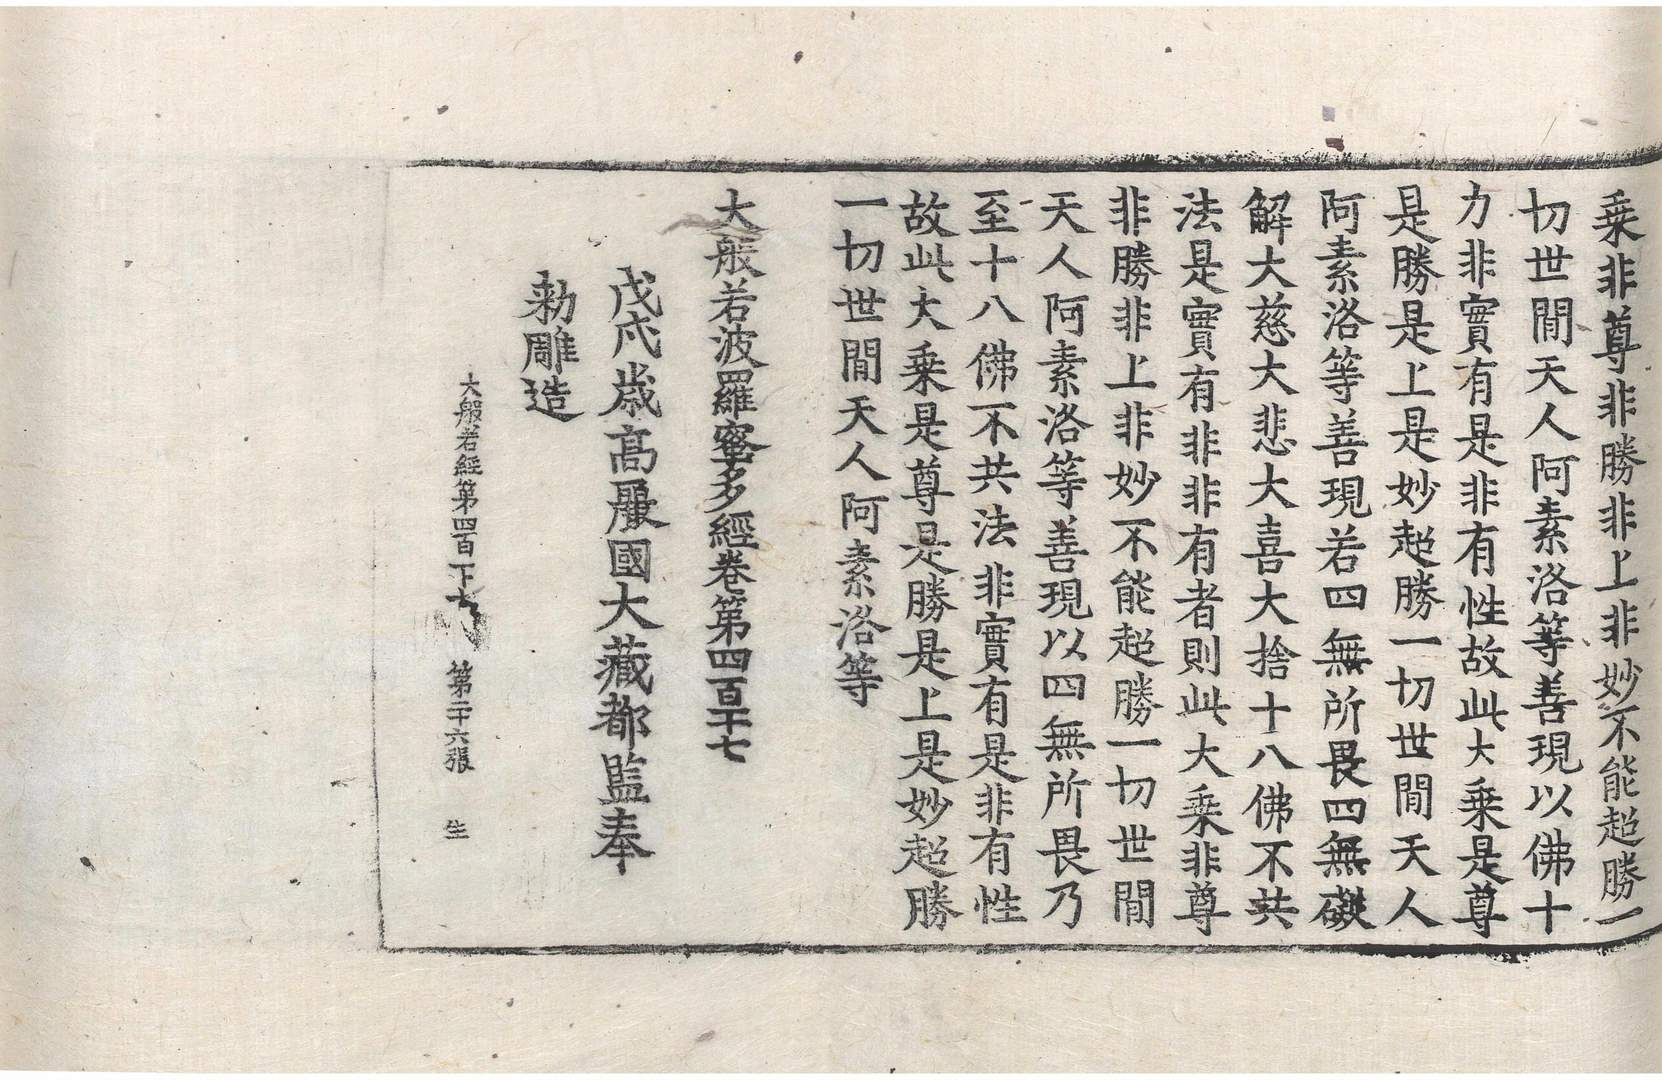 乗非尊非勝非上非妙不能超勝一
切世間天人阿素洛等善現以佛十
力非實有是非有性故此大乗是尊
是勝是上是妙超勝一切世間天人
阿素洛等善現若四無所畏四無礙
解大慈大悲大喜大捨十八佛不共
法是實有非非有者則此大乗非尊
非勝非上非妙不能超勝一切世間
天人阿素洛等善現以四無所畏乃
至十八佛不共法非實有是非有性
故此大乗是尊是勝是上是妙超勝
一切世間天人阿素洛等
大般若波羅蜜多經卷第四百十七
戊戌歲高麗國大藏都監奉
勑雕造
大般若經第四百十七 第二十六張 生